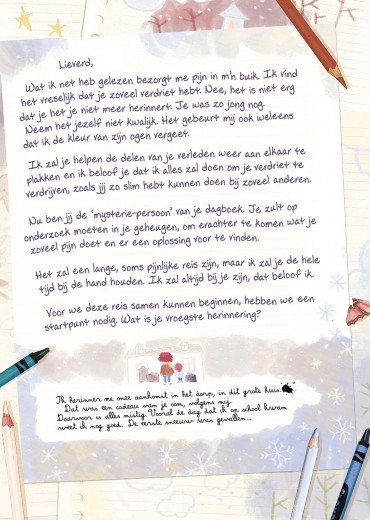 Lieverd,
Wat ik net heb gelezen bezorgt me pijn in m'n buik. Ik vind
het vreselijk dat je zoveel verdriet hebt. Nee, het is niet erg
dat je het je niet meer herinnert. Je was zo jong nog.
Neem het jezelf niet kwalijk. Het gebeurt mij ook weleens
dat ik de kleur van zijn ogen vergeet.
Ik zal je helpen de delen van je verleden weer aan elkaar te
plakken en ik beloof je dat ik alles zal doen om je verdriet te
verdrijven, zoals jij zo slim hebt kunnen doen bij zoveel anderen.
Nu ben jij de 'mysterie-persoon' van je dagboek. Je zult op
onderzoek moeten in je geheugen, om erachter te komen wat je
zoveel pijn doet en er een oplossing voor te vinden.
Het zal een lange, soms pijnlijke reis zijn, maar ik zal je de hele
tijd bij de hand houden. Ik zal altijd bij je zijn, dat beloof ik.
Voor we deze reis samen kunnen beginnen, hebben we een
startpunt nodig. Wat is je vroegste herinnering?
Ik herinner me onze aankomst in het dorp, in dit grote huis.
Dat was een cadeau van je oom, volgens mij.
Daarvoor is alles mistig. Vooral de dag dat ik op school kwam
weet ik nog goed. De eerste sneeuw was gevallen...